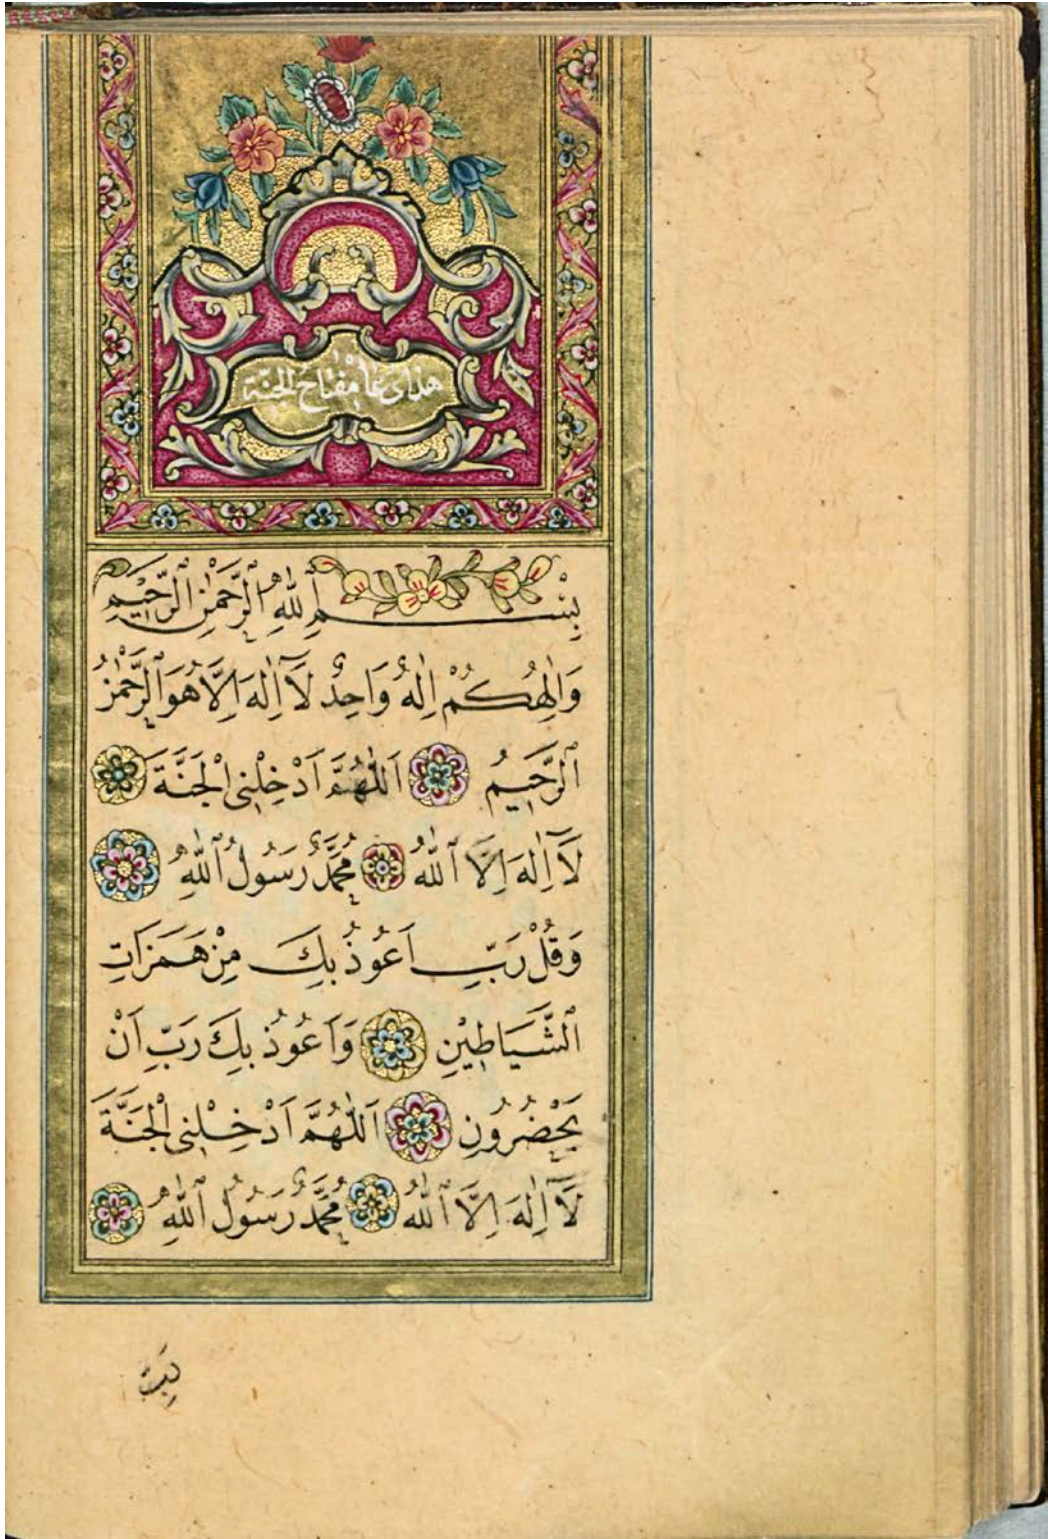 هذا دعاء مفتاح الجنّة
بِسْمِ ٱللّٰهِ ٱلرَّحْمٰنِ ٱلرَّحِيمِ
وَاِلٰهُكُمْ اِلٰهٌ وَاحِدٌ لَٓا اِلٰهَ اِلَّا هُوَ ٱلرَّحْمٰنُ
ٱلرَّحِيمُ اَللّٰهُمَّ اَدْخِلْنِى الْجَنَّةَ
لَٓا اِلٰهَ اِلَّا ٱللّٰهُ مُحَمَّدٌ رَسُولُ ٱللّٰهِ
وَقُلْ رَبِّ اَعُوذُ بِكَ مِنْ هَمَزَاتِ
ٱلشَّيَاطِيْنِ وَاَعُوذُ بِكَ رَبِّ اَنْ
يَحْضُرُونِ اَللّٰهُمَّ اَدْخِلْنِى الْجَنَّةَ
لَٓا اِلٰهَ اِلَّا ٱللّٰهُ مُحَمَّدٌ رَسُولُ ٱللّٰهِ